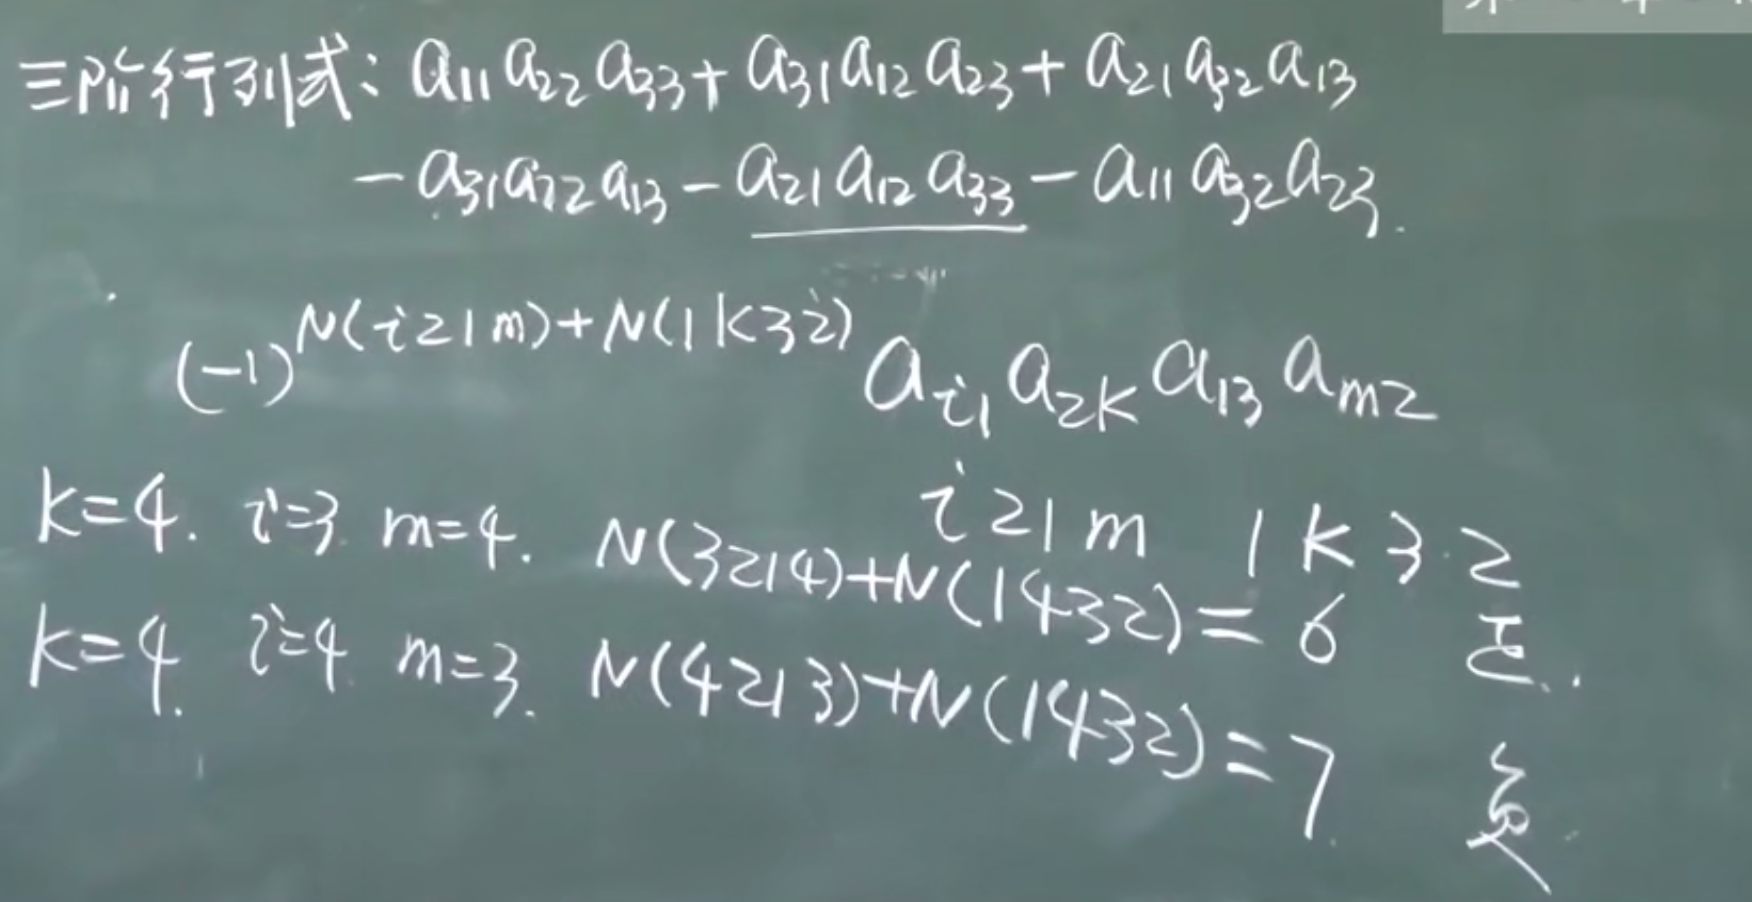 三阶行列式: a₁₁a₂₂a₃₃+a₃₁a₁₂a₂₃+a₂₁a₃₂a₁₃
-a₃₁a₂₂a₁₃-a₂₁a₁₂a₃₃-a₁₁a₃₂a₂₃.
(-1)^{N(i21m)+N(1k32)} a_{i1} a_{2k} a_{13} a_{m2}
i21m 1k32
k=4. i=3 m=4. N(3214)+N(1432)=6 正.
k=4. i=4 m=3. N(4213)+N(1432)=7 负